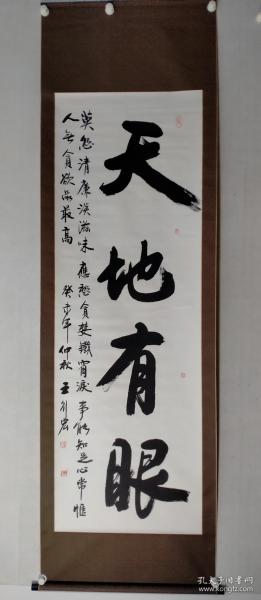 天地有眼
莫愁清廉淡滋味 應愁貪婪鐵窗淚 事能知足心常愜
人無貪欲品最高 癸未年仲秋 王
孔夫子旧书网